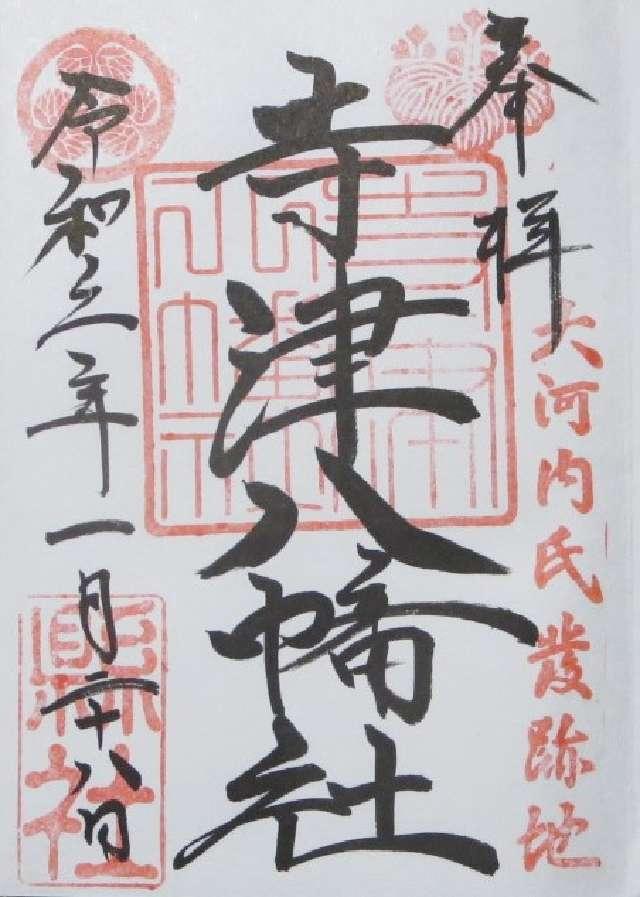 奉拝
大河内氏發跡地
寺津八幡社
寺津八幡社
令和三年一月二十八日
縣社